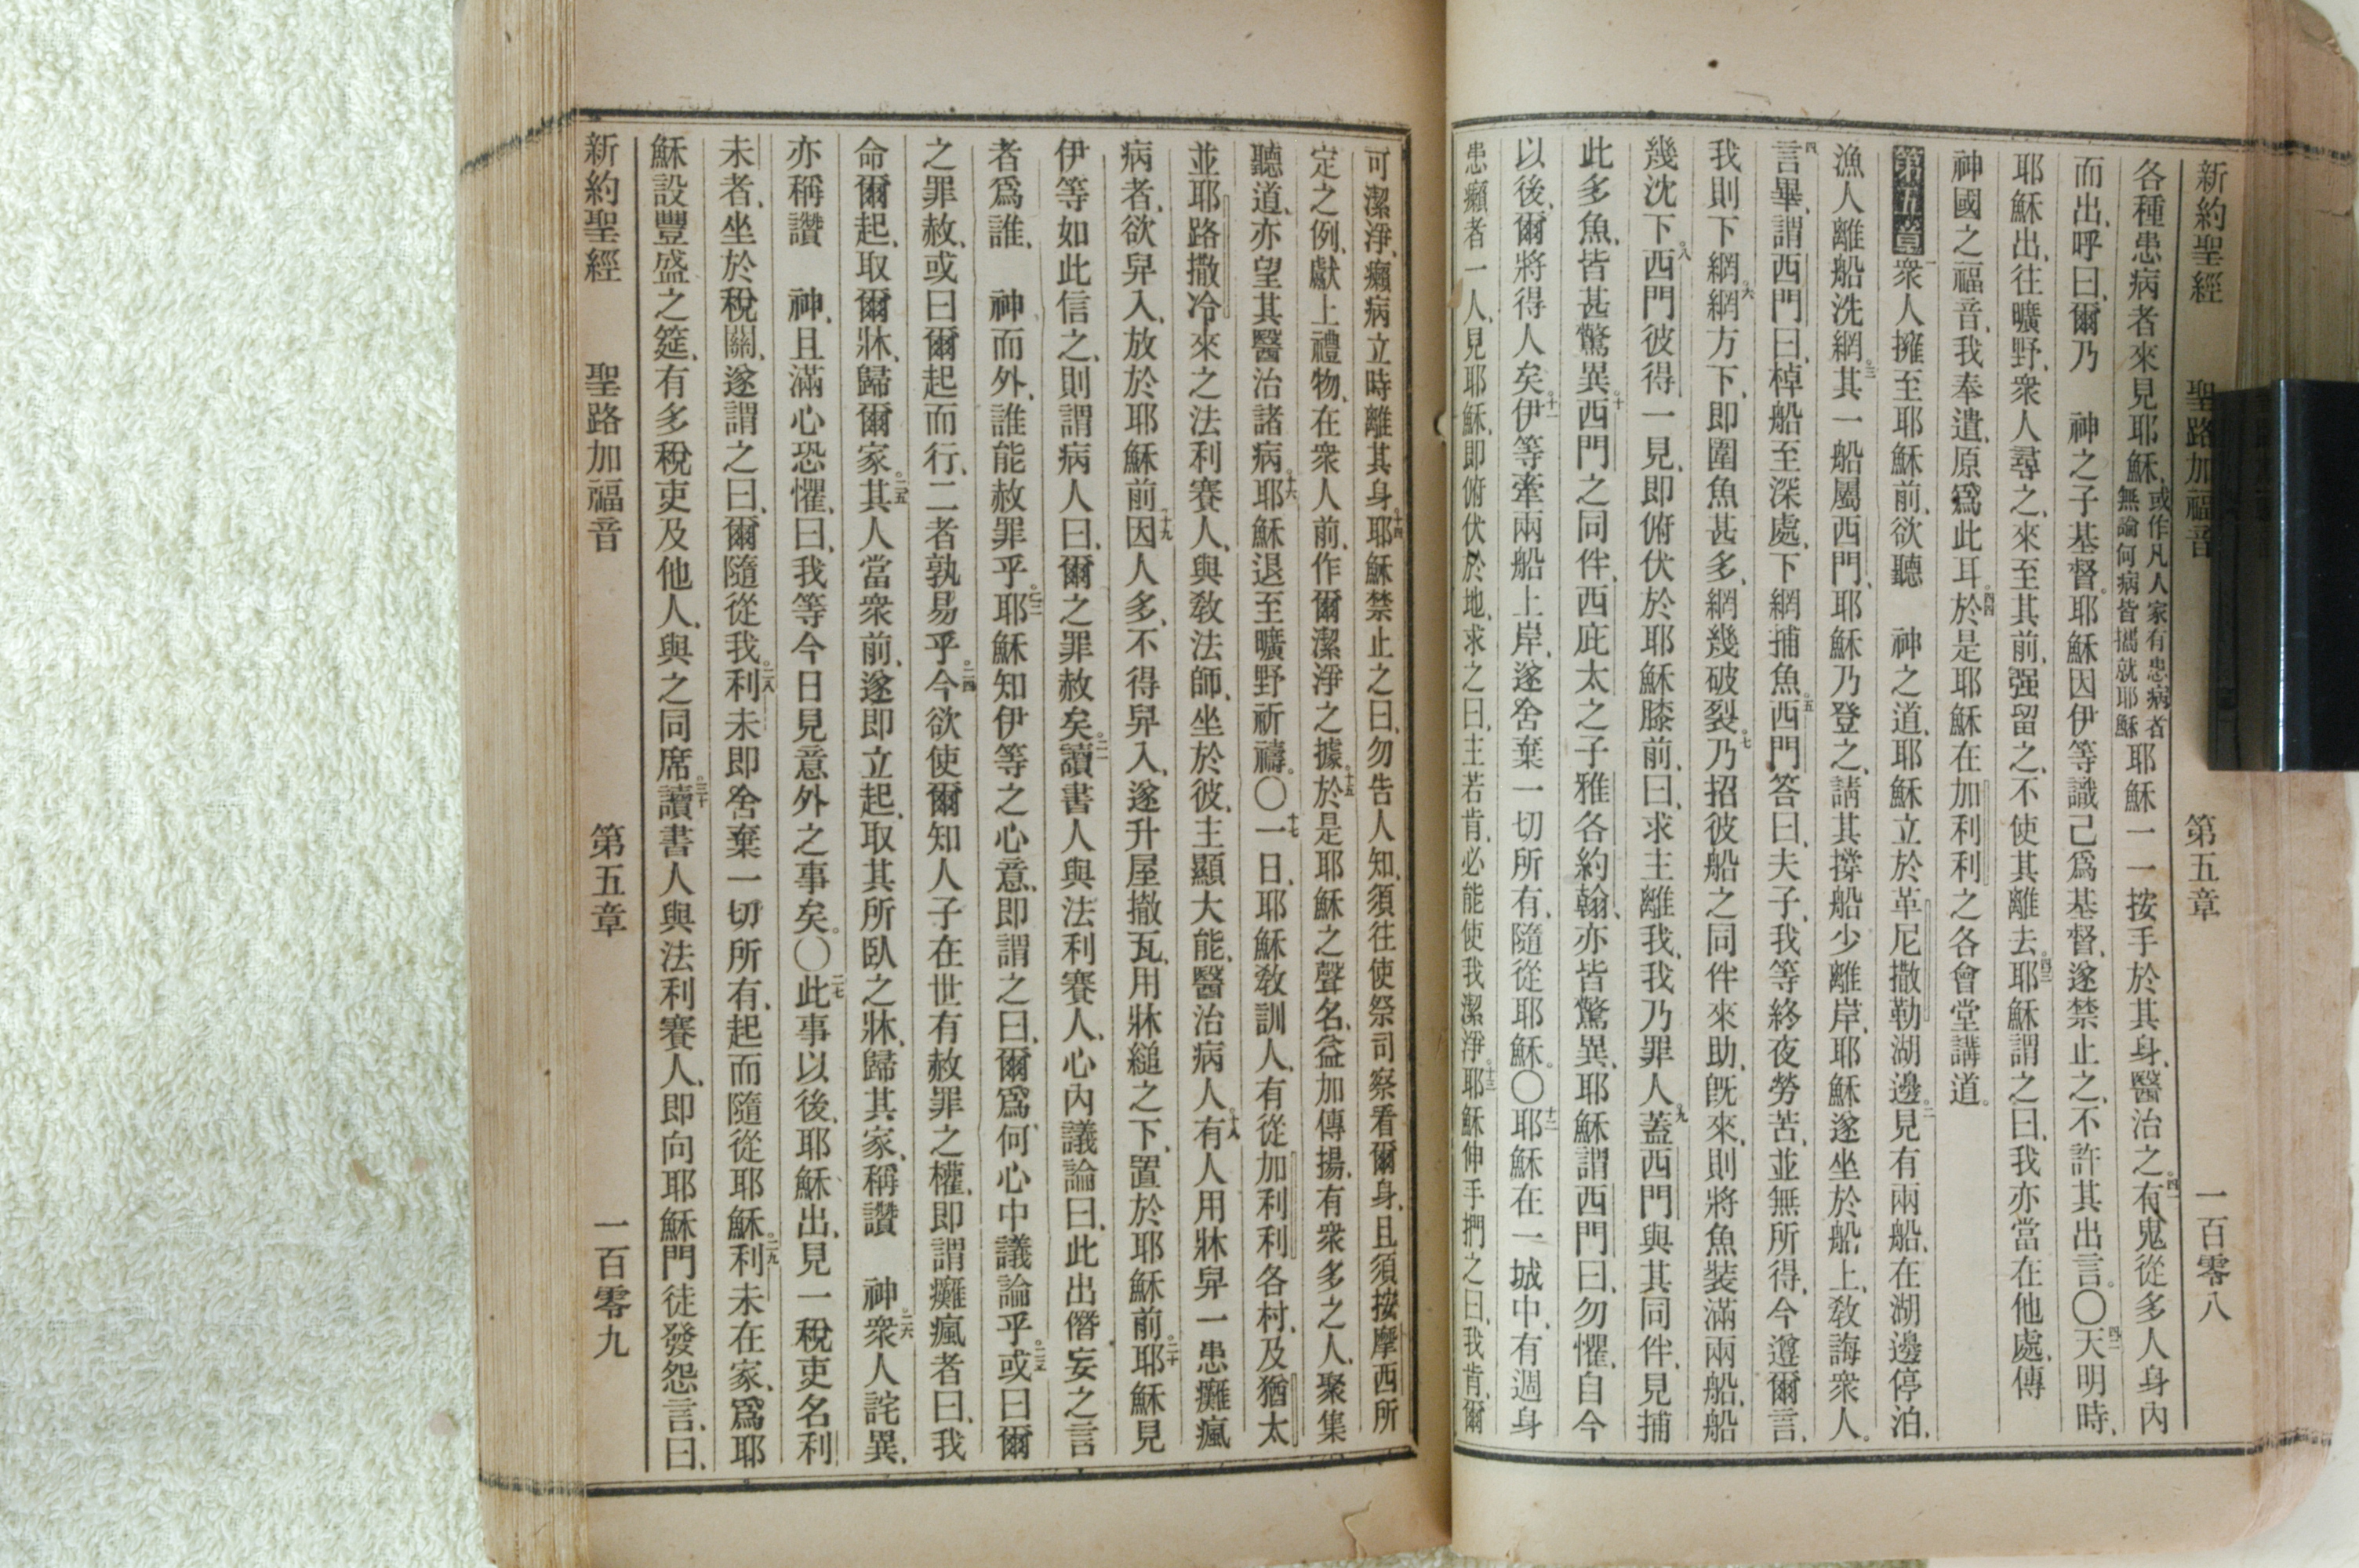 新約聖經 聖路加福音 第五章 一百零八
各種患病者來見耶穌、或作凡人家有患病者無論何病皆攜就耶穌耶穌一一按手於其身、醫治之。四一有鬼從多人身內
而出、呼曰、爾乃 神之子基督。耶穌因伊等識己爲基督、遂禁止之、不許其出言。〇四二天明時、
耶穌出、往曠野、衆人尋之、來至其前、强留之、不使其離去。四三耶穌謂之曰、我亦當在他處、傳
神國之福音、我奉遣、原爲此耳。四四於是耶穌在加利利之各會堂講道。
第五章一衆人擁至耶穌前、欲聽 神之道、耶穌立於革尼撒勒湖邊。二見有兩船、在湖邊停泊、
漁人離船洗網。三其一船屬西門、耶穌乃登之、請其撐船少離岸、耶穌遂坐於船上、敎誨衆人。
四言畢、謂西門曰、棹船至深處、下網捕魚。五西門答曰、夫子、我等終夜勞苦、並無所得、今遵爾言、
我則下網。六網方下、即圍魚甚多、網幾破裂。七乃招彼船之同伴來助、旣來、則將魚裝滿兩船、船
幾沈下。八西門彼得一見、即俯伏於耶穌膝前、曰、求主離我、我乃罪人。九蓋西門與其同伴、見捕
此多魚、皆甚驚異。十西門之同伴、西庇太之子雅各約翰、亦皆驚異、耶穌謂西門曰、勿懼、自今
以後、爾將得人矣。十一伊等牽兩船上岸、遂舍棄一切所有、隨從耶穌。〇十二耶穌在一城中、有週身
患癩者一人、見耶穌、即俯伏於地、求之曰、主若肯、必能使我潔淨。十三耶穌伸手捫之曰、我肯、爾
可潔淨、癩病立時離其身。十四耶穌禁止之曰、勿告人知、須往使祭司察看爾身、且須按摩西所
定之例、獻上禮物、在衆人前、作爾潔淨之據。十五於是耶穌之聲名、益加傳揚、有衆多之人、聚集
聽道、亦望其醫治諸病。十六耶穌退至曠野祈禱。〇十七一日、耶穌敎訓人、有從加利利各村、及猶太
並耶路撒冷來之法利賽人、與敎法師、坐於彼、主顯大能、醫治病人。十八有人用牀舁一患癱瘋
病者、欲舁入、放於耶穌前、十九因人多、不得舁入、遂升屋撤瓦、用牀縋之下、置於耶穌前。二十耶穌見
伊等如此信之、則謂病人曰、爾之罪赦矣。二一讀書人與法利賽人、心內議論曰、此出僭妄之言
者爲誰、 神而外、誰能赦罪乎。二二耶穌知伊等之心意、即謂之曰、爾爲何心中議論乎。二三或曰爾
之罪赦、或曰爾起而行、二者孰易乎。二四今欲使爾知人子在世有赦罪之權、即謂癱瘋者曰、我
命爾起、取爾牀、歸爾家。二五其人當衆前、遂即立起、取其所臥之牀、歸其家、稱讚 神。二六衆人詫異、
亦稱讚 神、且滿心恐懼、曰、我等今日見意外之事矣。〇二七此事以後、耶穌出、見一稅吏名利
未者、坐於稅關、遂謂之曰、爾隨從我。二八利未即舍棄一切所有、起而隨從耶穌。二九利未在家、爲耶
穌設豐盛之筵、有多稅吏及他人、與之同席。三十讀書人與法利賽人、即向耶穌門徒發怨言、曰、
新約聖經 聖路加福音 第五章 一百零九